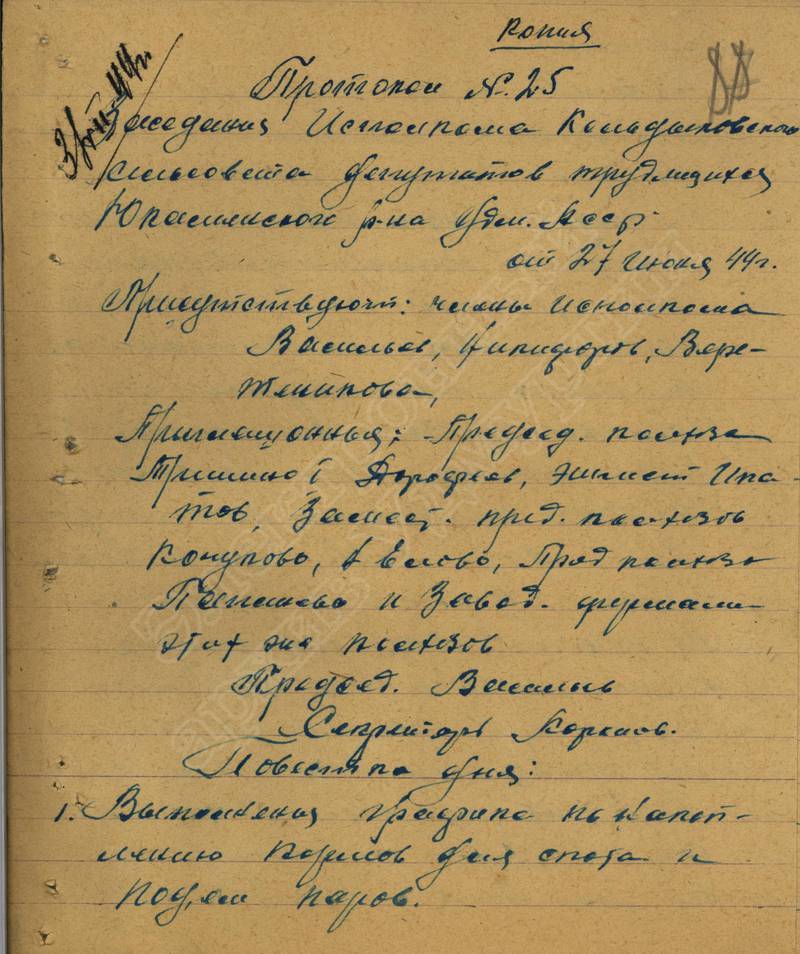 Копия
88
3/VII-44г
Протокол №.25
Заседания Исполкома Кельдыковского
сельсовета депутатов трудящихся
Юкаменского р-на Удм. Асср.
от 27 июня 44г.
Присутствуют: члены исполкома
Васильев, Никифоров, Вере-
теникова,
Приглашонныя: Председ. колхоза
Тришино Дорофеев, Ипа-
тов, Замест. пред. колхозов
Кочуково, Елово, Пред колхоза
и Завед. фермами
этих же колхозов
Председ. Васильев
Секретарь
Повестка дня:
1. Выполнения графика по накоп-
лению кормов для скота и
под,ем паров.